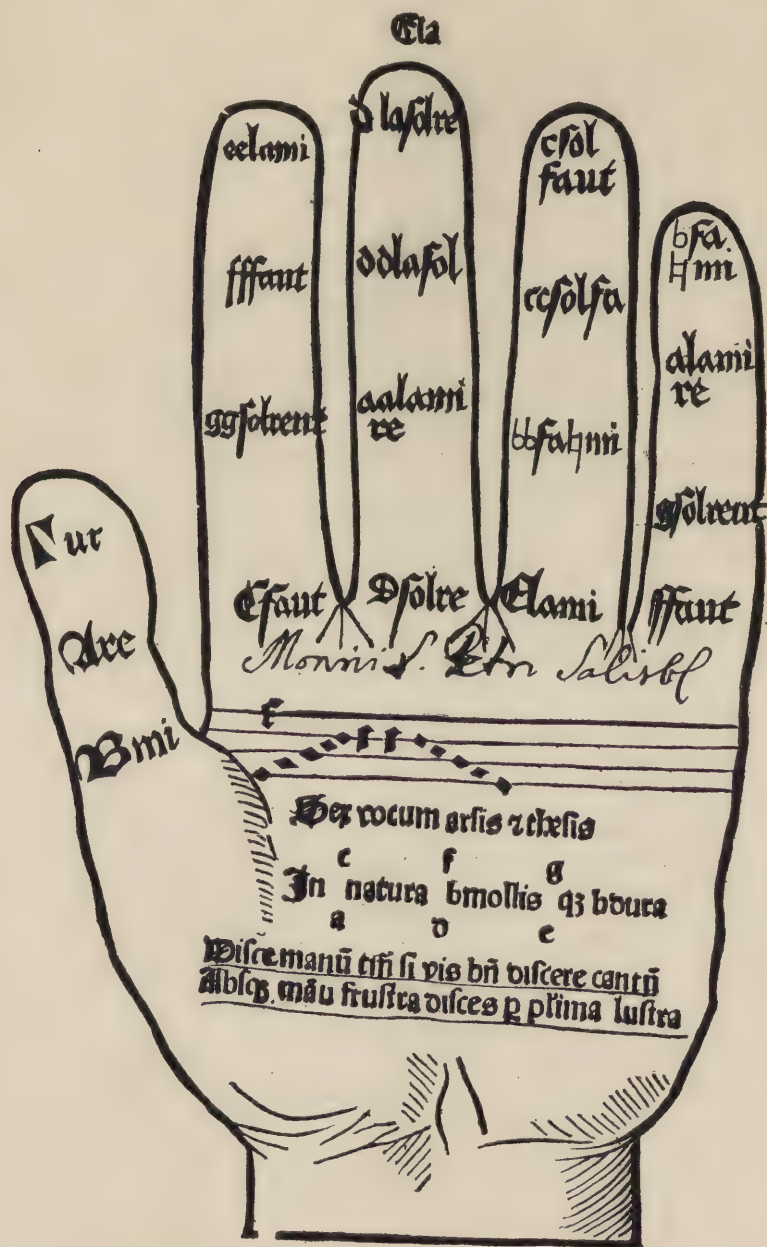 Ela
eelami
fffaut
ggsolreut
d lasolre
ddlasol
aalami
re
csol
faut
ccsolfa
bbfa♮mi
♭fa.
♮mi
alami
re
gsolreut
ffaut
Γ ut
Are
Bmi
Cfaut
Dsolre
Elami
Monrii S. Petri Salisb
f
Sex vocum arsis ⁊ thesis
c f g
In natura bmollis qꝫ bdura
a d e
Disce manū tibi si vis bn̄ discere cantū
Absqꝫ. māu frustra disces ꝑ pl'ima lustra